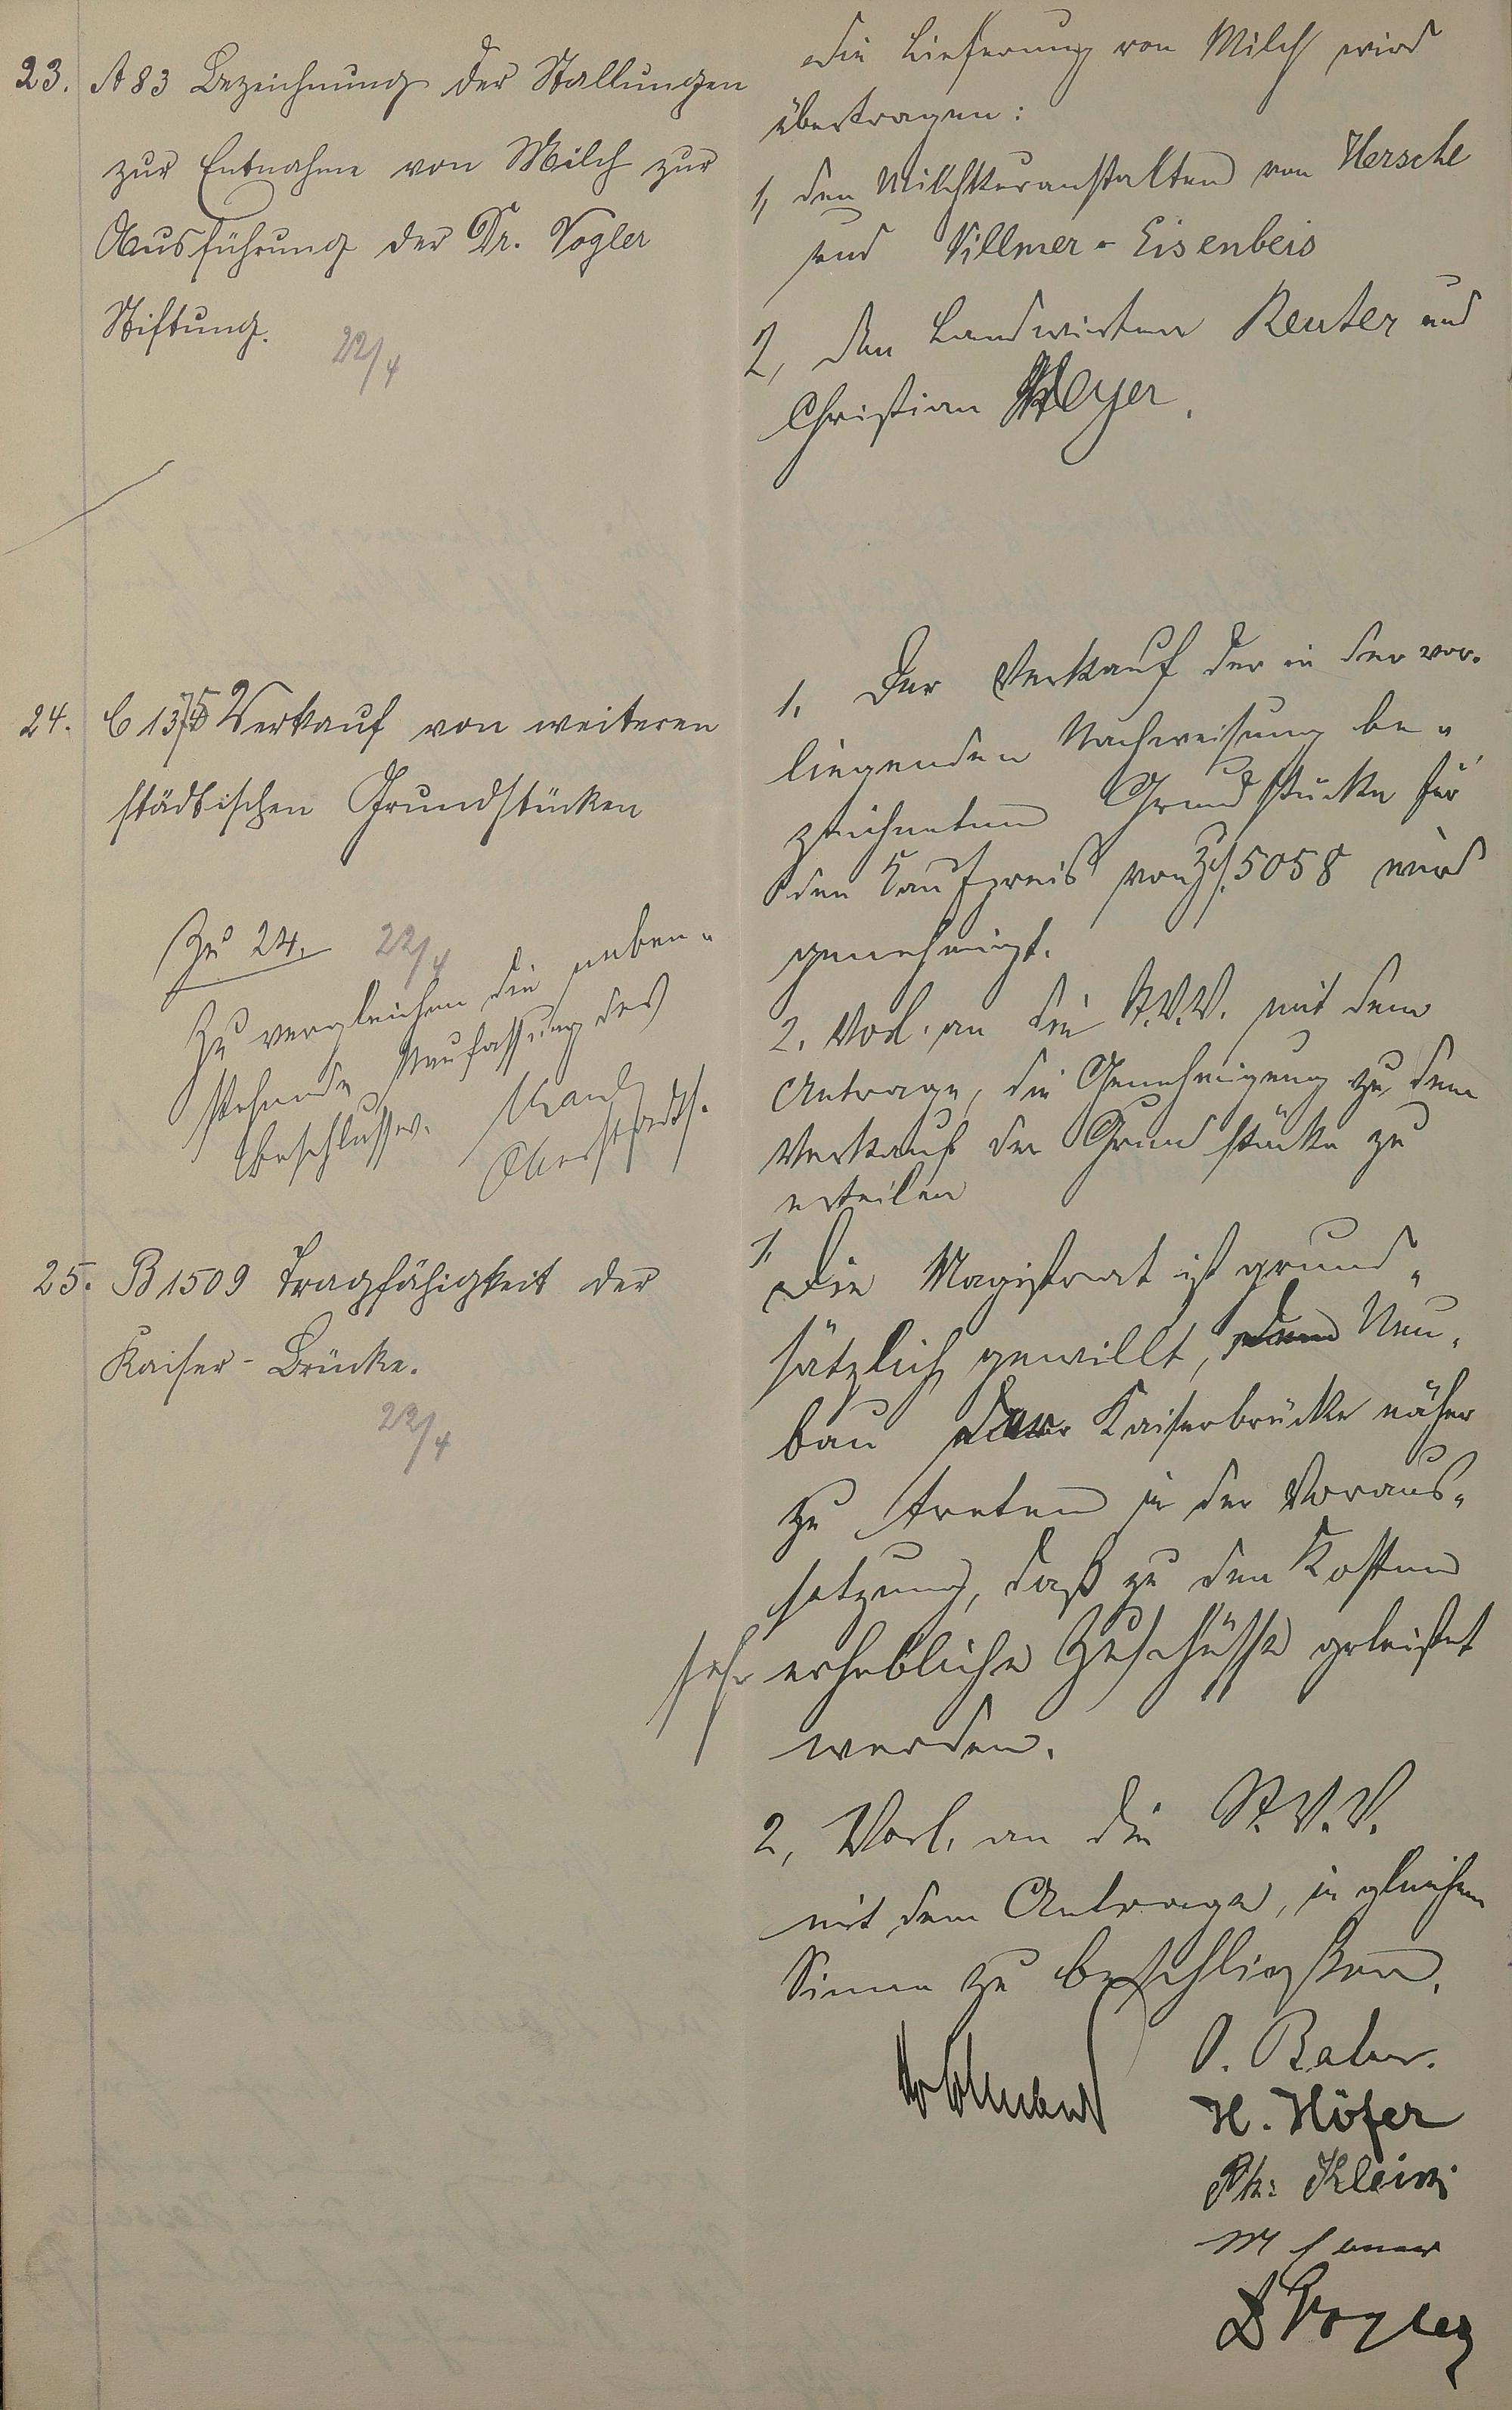 23. A 83 Bezeichnung der Stallungen
zur Entnahme von Milch zur
Ausführung der Dr. Vogler
Stiftung.
22/4
Die Lieferung von Milch wird
übertragen:
1, den Milchkuranstalten von Hersche
und Villmer-Eisenbeis
2, den Landwirten Reuter und
Christian Weyer.
24. C 1375 Verkauf von weiteren
städtischen Grundstücken
Zu 24. 22/4
Zu vergleichen die neben-
stehende Neufassung des
Beschlusses.
Oberstadts.
1. Der Verkauf der in der vor-
liegenden Nachweisung be-
zeichneten Grundstücke für
den Kaufpreis von 5058 wird
genehmigt.
2. Vorl. an die St.V.V. mit dem
Antrage, die Genehmigung zu dem
Verkauf der Grundstücke zu
erteilen
25. B 1509 Tragfähigkeit der
Kaiser-Brücke.
22/4
1, Die Magistrat ist grund-
sätzlich gewillt, dem Neu-
bau der Kaiserbrücke näher
zu treten in der Voraus-
setzung, daß zu den Kosten
sehr erhebliche Zuschüsse geleistet
werden.
2, Vorl. an die St.V.V.
mit dem Antrage, in gleichem
Sinne zu beschließen.
H. Höfer
Ph. Klein
D Vogler